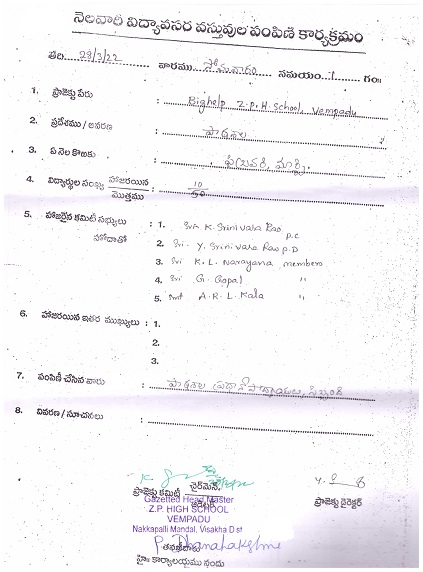 నెలవారీ విద్యావసర వస్తువుల పంపిణి కార్యక్రమం
తేది. 29/3/22 వారము సోమవారం సమయం. 1 గం॥
1. ప్రాజెక్టు పేరు : Bighelp Z.P.H. School, Vempadu
2. ప్రదేశము / ఆవరణ : పాఠశాల
3. ఏ నెల కొఱకు : ఫిబ్రవరి, మార్చి.
4. విద్యార్థుల సంఖ్య హాజరయిన / మొత్తము : 10
5. హాజరైన కమిటీ సభ్యులు : 1. Sri K. Srinivasa Rao P.C
హోదాతో 2. Sri. Y. Srinivasa Rao P.D
3. Sri K.L. Narayana members
4. Sri G. Gopal "
5. Smt A.R.L. Kala "
6. హాజరయిన ఇతర ముఖ్యులు : 1.
2.
3.
7. పంపిణీ చేసిన వారు : పాఠశాల ప్రధానోపాధ్యాయులు, సిబ్బంది
8. వివరణ / సూచనలు :
ప్రాజెక్టు కమిటీ చైర్మెన్. ప్రాజెక్టు డైరెక్టర్
Gazetted Head Master
Z.P. HIGH SCHOOL
VEMPADU
Nakkapalli Mandal, Visakha Dist
P. Dhanalakshmi
హై॥ కార్యాలయము నందు